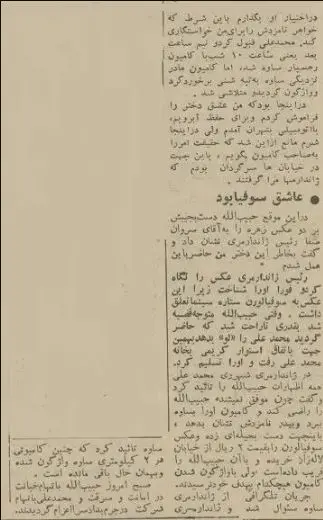 دراختیار او بگذارم باین شرط که
خواهر نامزدش رابرای‌من خواستگاری
کند. محمدعلی قبول کردو نیم ساعت
بعد یعنی ساعت ۱۰ شب‌با کامیون
رهسپار ساوه شد، اما کامیون مادر
نزدیکی ساوه به‌تپه شنی برخوردکرد
وواژگون گردیدو متلاشی شد.
دراینجا بودکه من عشق دختر را
فراموش کردم وبرای حفظ آبرویم،
بااتومبیلی بتهران آمدم ولی دراینجا
شرم مانع ازاین شد که حقیقت امررا
به‌صاحب کامیون بگویم، باین جهت
در خیابان ها سرگردان بودم که
ژاندارمها مرا گرفتند.
● عاشق سوفیابود
دراین موقع حبیب‌الله دست‌بجیبش
برد و عکس زهره را به‌آقای سروان
صفا رئیس ژاندارمری نشان داد و
گفت بخاطر این دختر من حاضرباین
عمل شدم
رئیس ژاندارمری عکس را نگاه
کردو فورا اورا شناخت زیرا این
عکس به‌سوفیالورن ستاره سینماتعلق
داشت. وقتی حبیب‌الله متوجه‌قضیه
شد بقدری ناراحت شد که حاضر
گردید محمد علی را «لو» بدهدبهمین
جهت باتفاق استوار کریمی بخانه
محمد علی رفت و اورا تسلیم کرد.
در ژاندارمری شهرری محمد علی
همه اظهارات حبیب‌الله را تائید کرد
وگفت چون موفق نمیشدم حبیب‌الله
را راضی کند و کامیون اورا بساوه
ببرد وبهدر نامزدش نشان بدهد،
باینجهت دست بحیله‌ای زده وعکس
سوفیالورن رابقیمت ۲ ریال از خیابان
لاله‌زار خریده و باآن حبیب‌الله را
فریب داده‌است ولی باواژگون شدن
کامیون هیچکدام بهدف خودنرسیدند.
جریان تلگرافی از ژاندارمری
ساوه سئوال شد و ژاندارمری
ساوه تائید کرد که چنین کامیونی
در ۲ کیلومتری ساوه واژگون شده
وبهمان حال باقی مانده است.
صبح امروز حبیب‌الله باتهام‌خیانت
در امانت و سرقت و محمدعلی‌باتهام
شرکت درجرم‌بدادسرااعزام گردیدند.